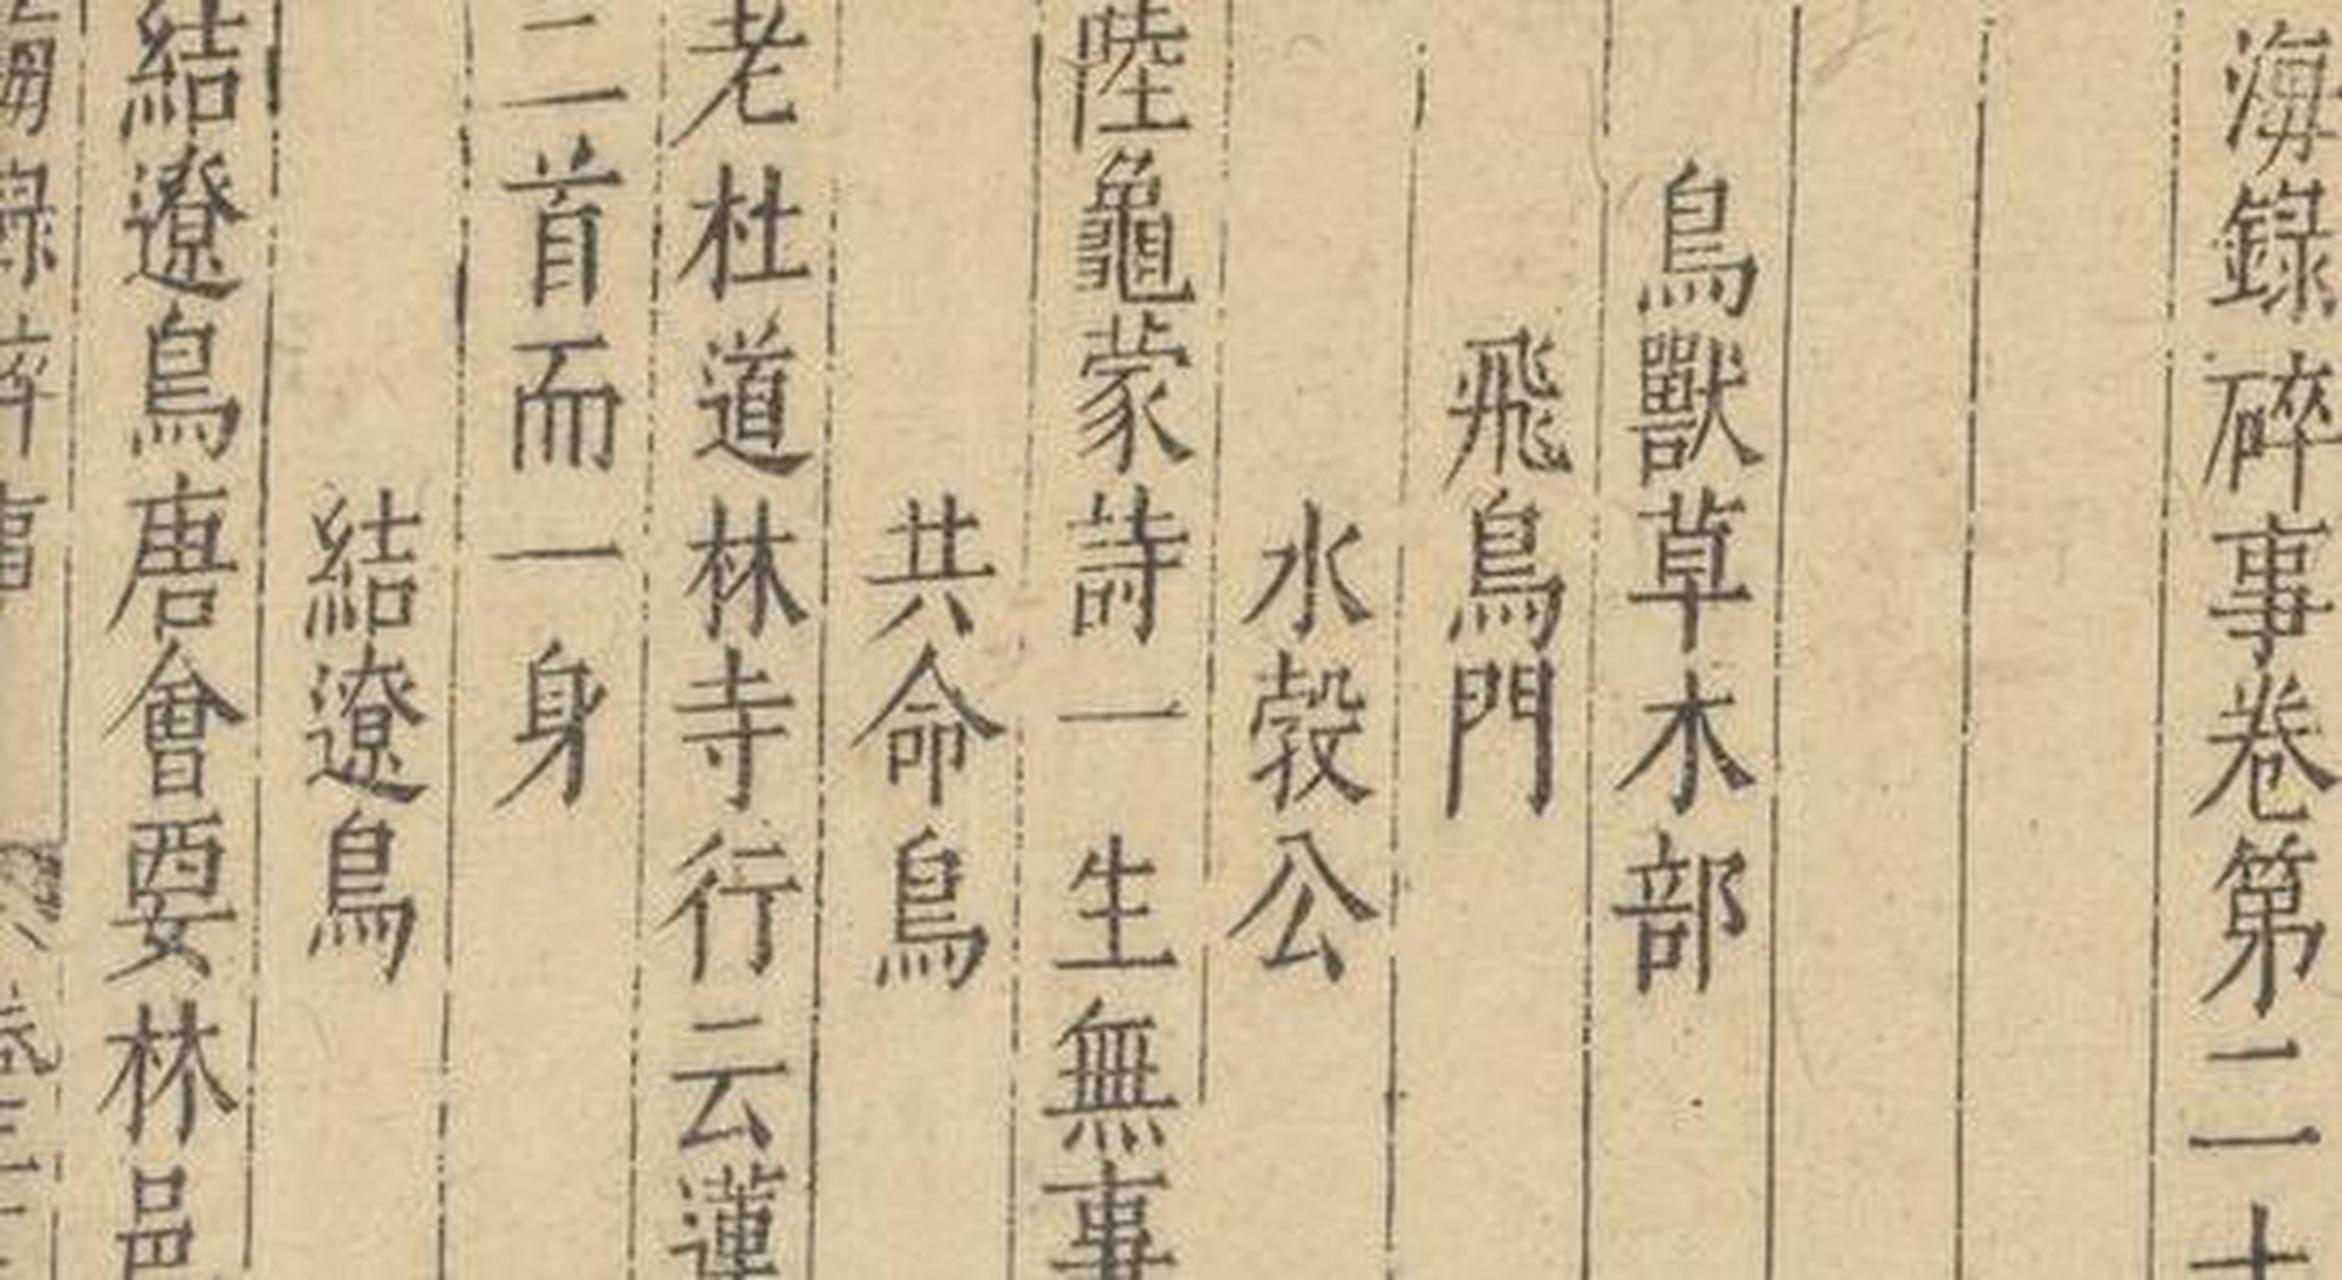 海錄碎事卷第二十
鳥獸草木部
飛鳥門
水𣪊公
陸龜蒙詩一生無事
共命鳥
老杜道林寺行云蓮
二首而一身
結遼鳥
結遼鳥唐會要林邑
海錄碎事